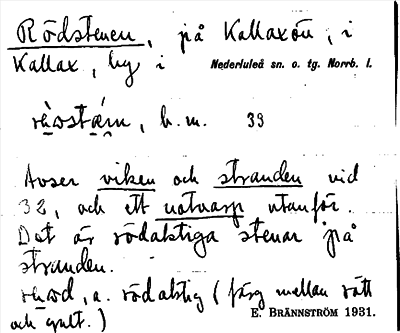 Rödstenen, på Kallaxön, i
Kallax, by i Nederluleå sn. o. tg. Norrb. l.
, b. m. 33
Avser viken och stranden vid
32, och ett notvarp utanför.
Det är rödaktiga stenar på
stranden.
, a. rödaktig (färg mellan rött
och gult.) E. BRÄNNSTRÖM 1931.